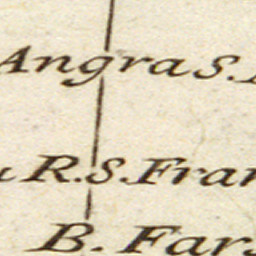 Angra S.
R. S. Fran
B. Fars